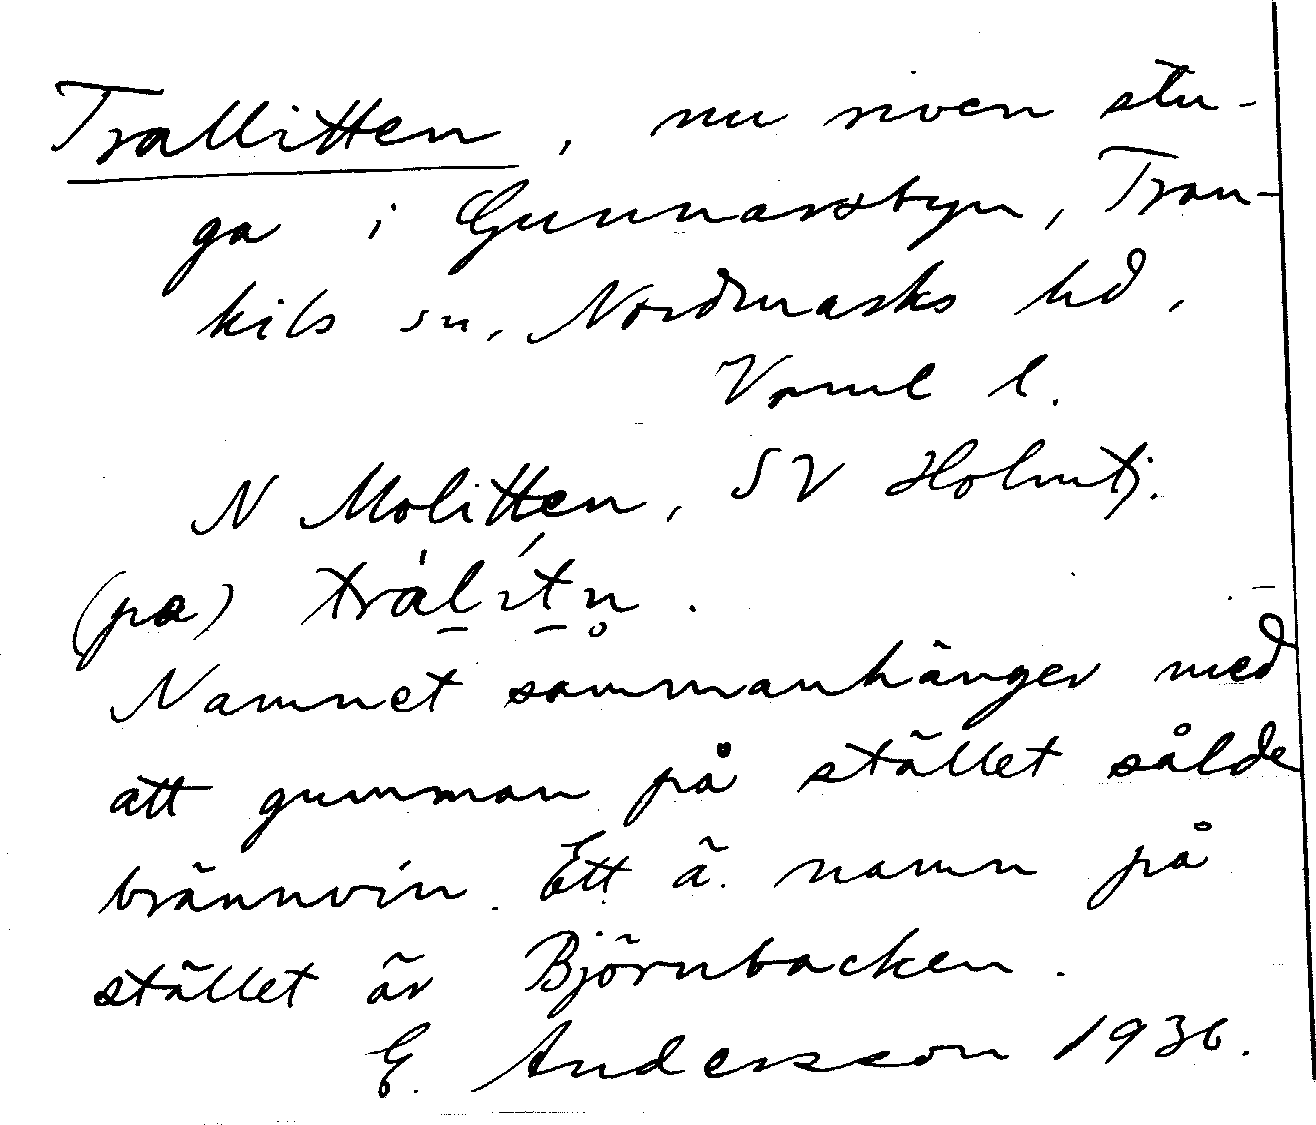 Trallitten, nu riven stu-
ga i Gunnarsbyn, Tran-
kils sn, Nordmarks hd,
Värml l.
N Molitten, SV Holmtj.
(pa) tràlítn.
Namnet sammanhänger med
att gumman på stället sålde
brännvin. Ett ä. namn på
stället är Björnbacken.
G. Andersson 1936.